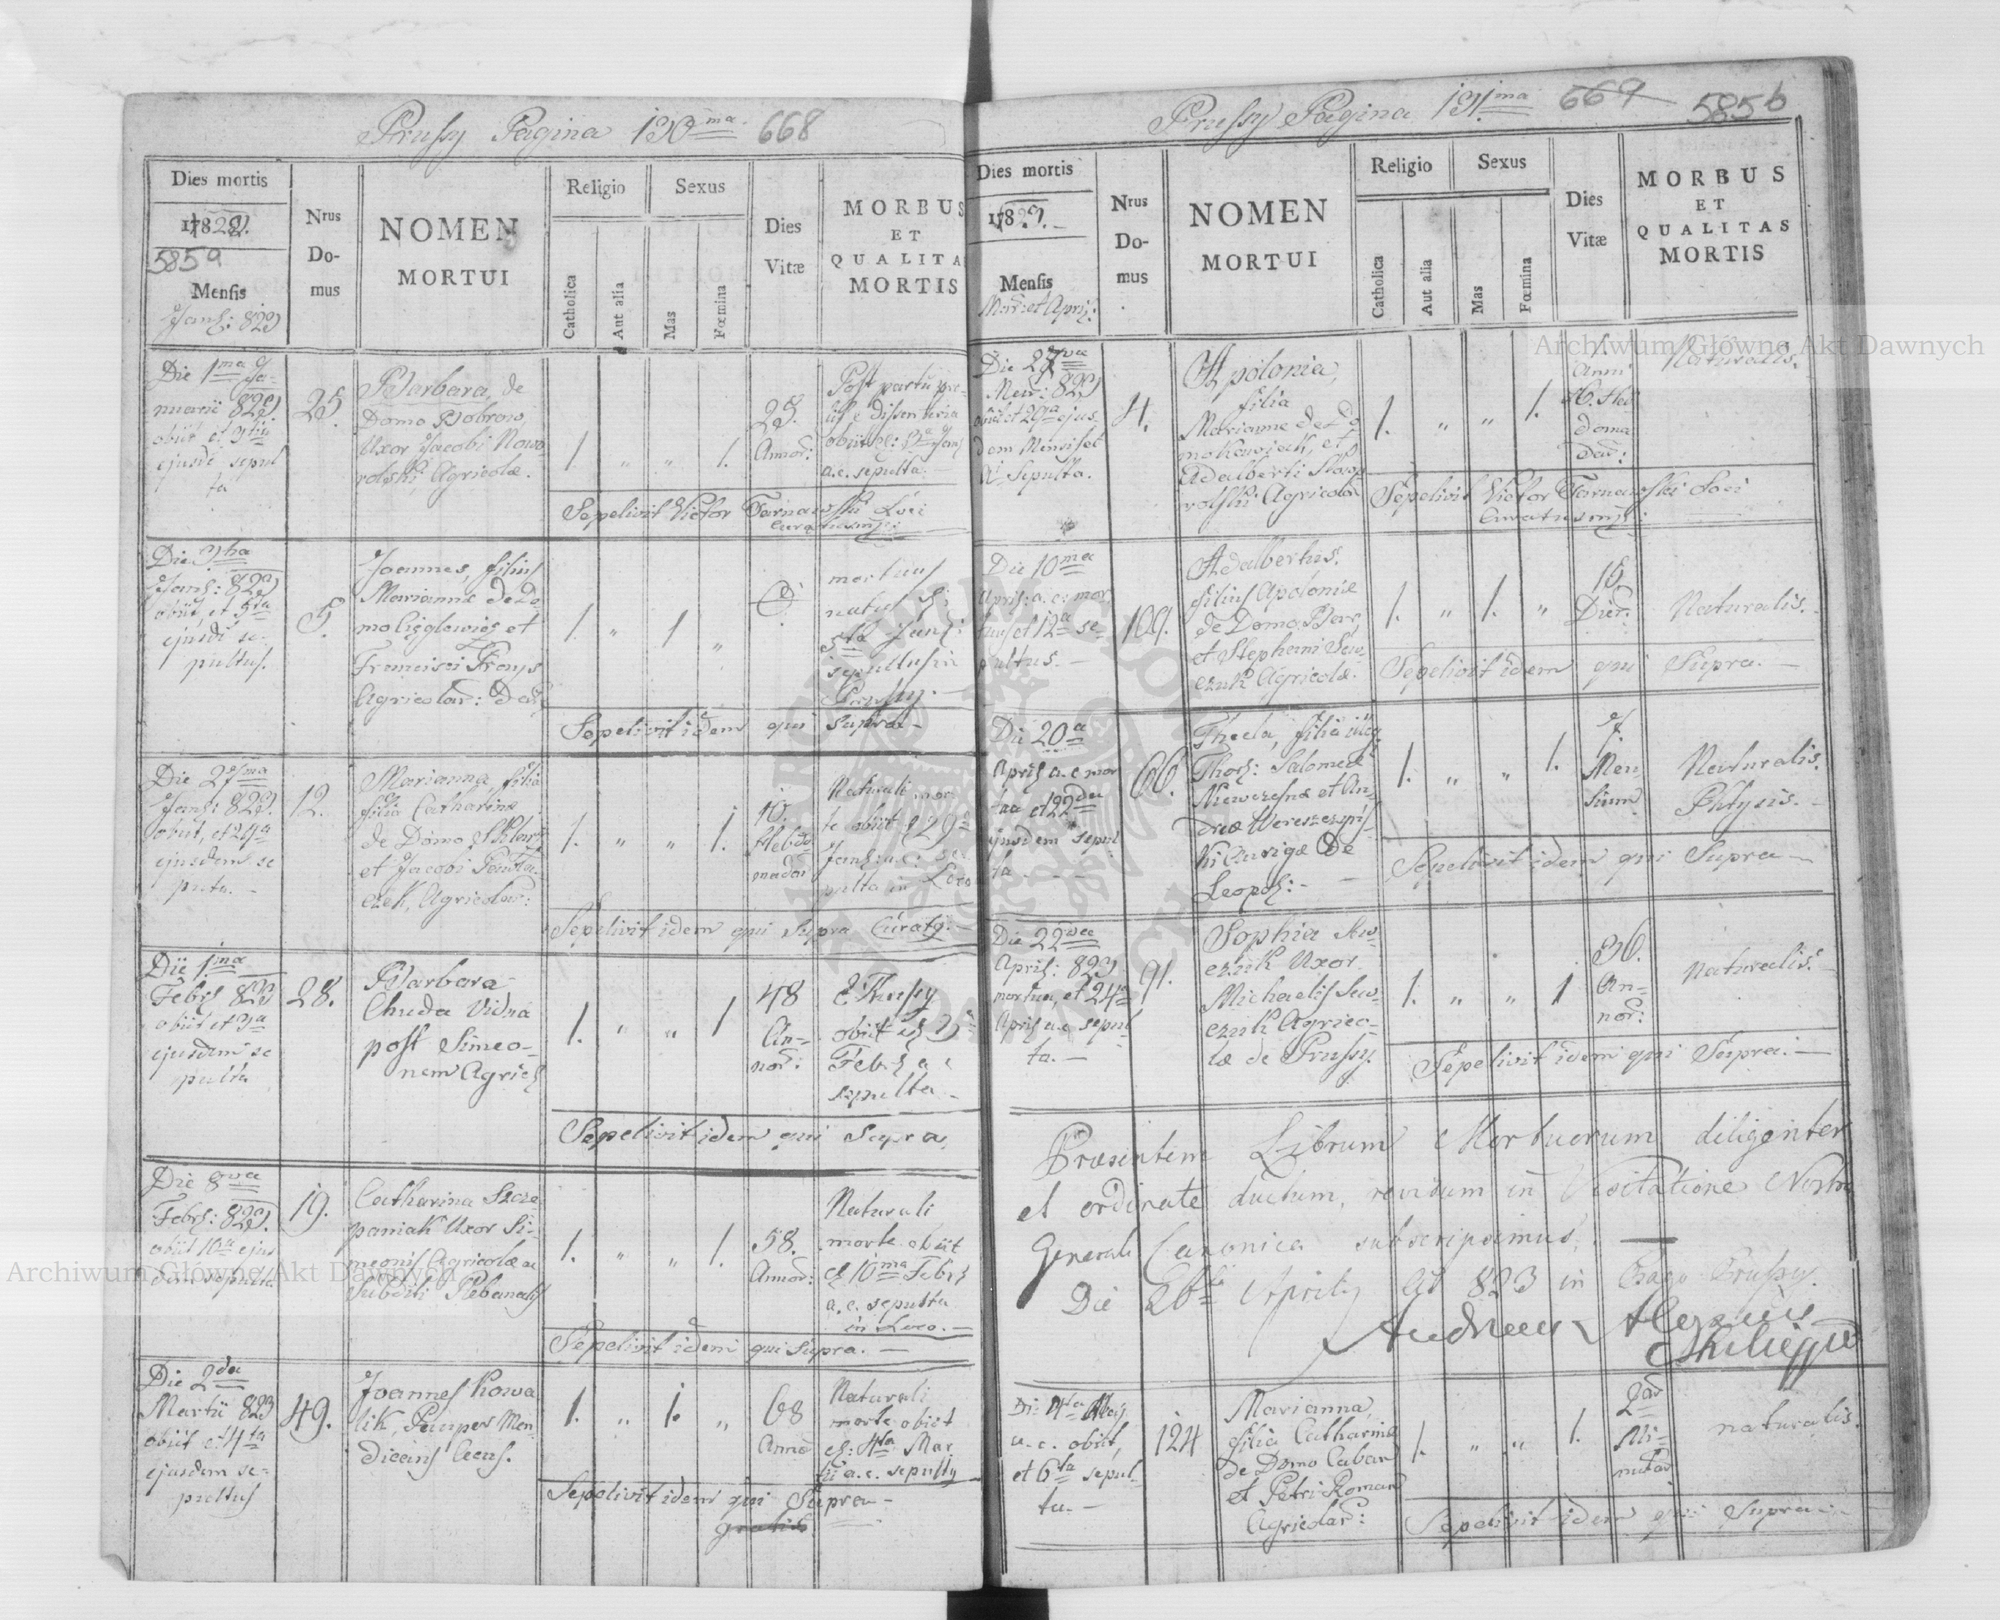 Prussy Pagina 130ma 668
Dies mortis
1823.
585a
Mensis
Janr: 823
Nrus
Do-
mus
NOMEN
MORTUI
Religio
Catholica
Aut alia
Sexus
Mas
Fœmina
Dies
Vitæ
MORBUS
ET
QUALITA
MORTIS
Die 1ma Ja-
nuarii 823.
obiit et 3tia
ejusd: sepul
ta
25.
Barbara, de
Domo Bobrow,
Uxor Jacobi Nowo
rolski, Agricolæ.
1. " " 1.
25.
Annor:
Post partu
dissenteria
a.c. sepulta.
Sepelivit Victor Tarnawski Loci
Curatus mpr
Die 3tia
Janr: 823
obiit, et 5ta
ejusd: se-
pultus.
5.
Joannes, filius
Mariannæ de Do
mo
Francisci
Agricolar:
1. " 1 "
mortuus
natus
5ta Janr:
sepultus in
Prussy.
Sepelivit idem qui supra -
Die 27ma
Janr: 823.
obiit, et 29a
ejusdem se
pulta. -
12.
Marianna filia
filia Catharinæ
de Domo
et Jacobi
czek, Agricolar:
1. " " 1.
10.
Hebdo
madar
Naturali mor
te obiit
Janr: a.c. se
pulta in Loco
Sepelivit idem qui Supra Curatg. -
Die 1ma
Febr: 823
obiit et 3a
ejusdem se
pulta
28.
Barbara
Chuda Vidua
post Simeo-
nem Agric:
1. " " 1
48
An-
nor:
E Prussy
obiit
Febr: a c
sepulta -
Sepelivit idem qui Supra
Die 8va
Febr: 823.
obiit 10a ejus
dem sepulta
19.
Catharina Szcze
paniak Uxor Si-
meonis Agricolæ ac
Subditi Plebanalis
1. " " 1.
58.
Annor:
Naturali
morte obiit
et 10ma Febr:
a.c. sepulta
in Loco. -
Sepelivit idem qui supra. -
Die 2da
Martii 823
obiit et 4ta
ejusdem se-
pultus
49.
Joannes Kowa
lik, Pauper Men
dicans
1. " 1. "
68
Annor
Naturali
morte obiit
et: 4ta Mar
tii a.c. sepultg
Sepelivit idem qui Supra -
gratis
Prussy Pagina 131.ma 669 585b
Dies mortis
1823. -
Mensis
Mar: et Apri:
Nrus
Do-
mus
NOMEN
MORTUI
Religio
Catholica
Aut alia
Sexus
Mas
Fœmina
Dies
Vitæ
MORBUS
ET
QUALITAS
MORTIS
Die 27va
Mar: 823
obiit et 29a ejus
dem Mensis et
Ai Sepulta.
4.
Apolonia,
filia
Marianne de Do
et
Adalberti Nowo
rolski Agricolar
1. " " 1.
1.
Anni
6. Heb
doma
dar:
Naturalis.
Sepelivit Victor Tarnawski Loci
Curatus mpr:
Die 10ma
Apri: a. c: mor
tuus et 12a se-
pultus. -
109.
Adalbertus.
filius Apoloniæ
de Domo Ber,
et Stephani Sew-
czuk Agricolæ.
1. " 1. "
16
Dier.
Naturalis.
Sepelivit idem qui Supra. -
Die 20a
Apri: a. c mor
tua et 22da
ejusdem sepul
ta - - -
66.
Thecla, filia illeg.
Thor: Salomeæ
et An-
dreæ Wereszczyńs
ki Aurigæ de
Leopol: -
1. " " 1.
7.
Men
sium
Naturalis.
Phtysis. -
Sepelivit idem qui Supra -
Die 22da
Apri: 823
mortua, et 24a
Apri a.c. sepul
ta. -
91.
Sophia Sew-
czuk Uxor
Michaelis Sew-
czuk Agrico-
læ de Prussy.
1. " " 1
36.
An-
nor:
naturalis.
Sepelivit idem qui Supra. -
Præsentem Librum Mortuorum diligenter
et ordinate ductum, revisum in Visitatione Nostra
Generali Canonica subscripsimus. -
Die 26ta Aprilis 823 in Prussy.
Andreas Aloysius
Di: 4ta Maij
a. c. obiit,
et 6ta sepul-
ta. -
124
Marianna,
filia Catharinæ
de Domo Caban
et Petri Roman
Agricolar:
1. " " 1.
2ar
Mi-
nutar
naturalis.
Sepelivit idem qui Supra. -
Archiwum Główne Akt Dawnych
Archiwum Główne Akt Dawnych
ARCHIWUM GŁÓWNE AKT DAWNYCH